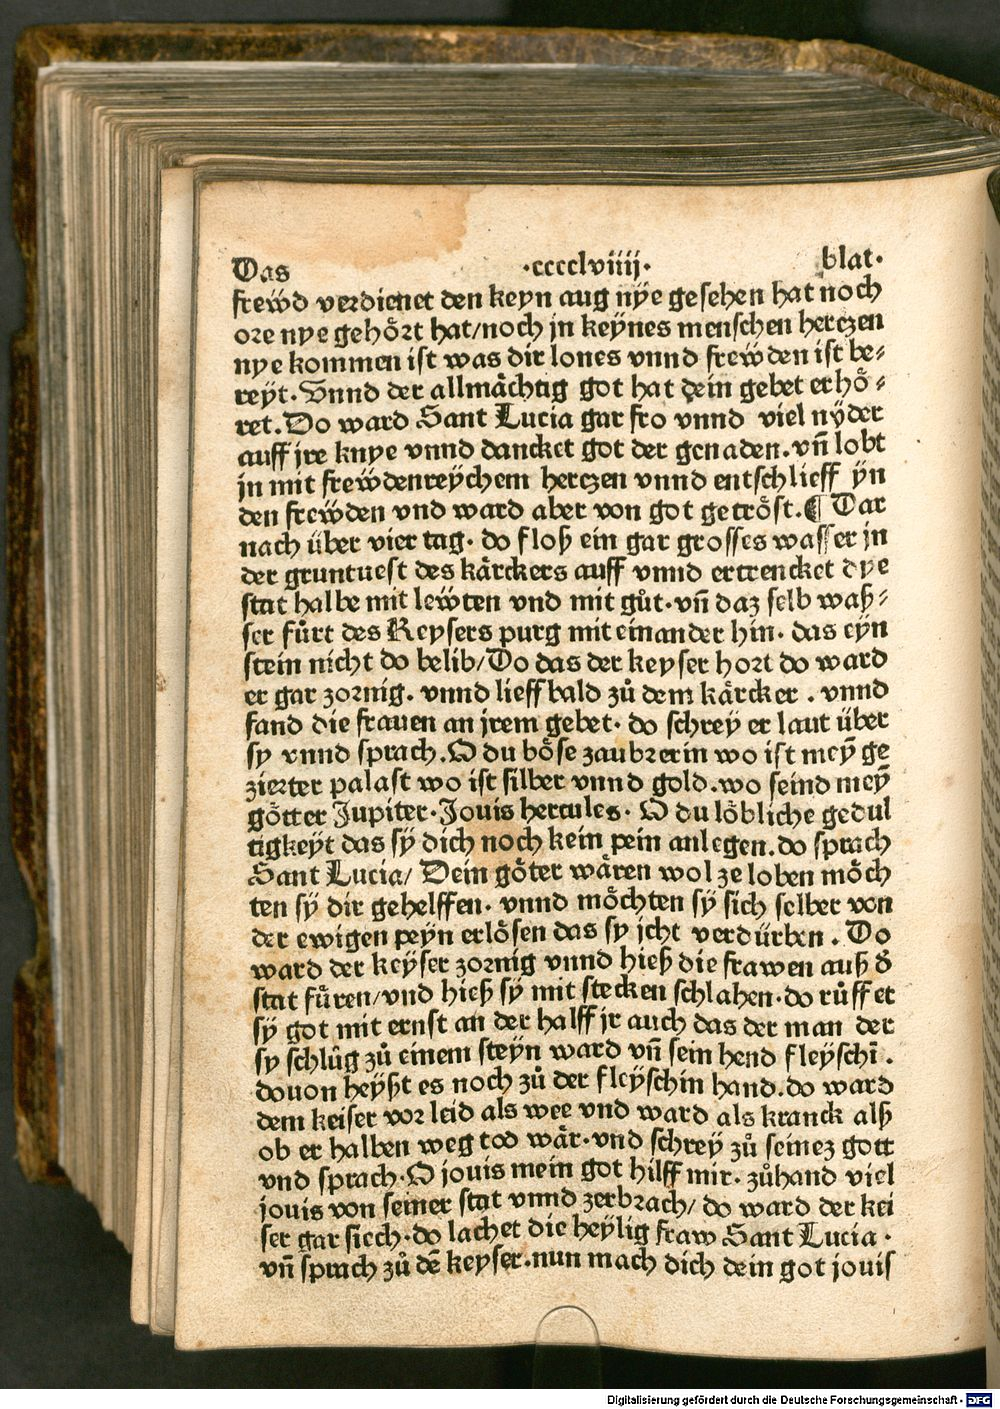 Das ·cccclviiij· blat·
frew̎d verdienet den keyn aug nÿe gesehen hat noch
ore nye gehoͤrt hat/noch jn keÿnes menschen herczen
nye kommen ist was dir lones vnnd frew̎den ist be⸗
reÿt. Vnnd der allmaͤchtig got hat dein gebet erhoͤ⸗
ret. Do ward Sant Lucia gar fro vnnd viel nÿder
auff jre knye vnnd dancket got der genaden. vñ lobt
jn mit frew̎denreÿchem herczen vnnd entschlieff ÿn
den frew̎den vnd ward aber von got getroͤst. ¶ Dar
nach über vier tag. do floß ein gar grosses wasser in
der gruntuest des kaͤrckers auff vnnd ertrencket dye
stat halbe mit lew̎ten vnd mit guͦt. vñ daz selb waß⸗
ser fuͤrt des Keysers purg mit einander hin. das eÿn
stein nicht do belib/Do das der keyser hort do ward
er gar zornig. vnnd lieff bald zuͦ dem kaͤrcker. vnnd
fand die frauen an jrem gebet. do schreÿ er laut über
sy vnnd sprach. O du boͤse zaubrerin wo ist meÿ̃ ge
zierter palast wo ist silber vnnd gold. wo seind meÿ̃
goͤtter Jupiter. Jouis hercules. O du loͤbliche gedul
tigkeÿt das sÿ dich noch kein pein anlegen. do sprach
Sant Lucia/ Dein goͤter waͤren wol ze loben moͤch
ten sÿ dir gehelffen. vnnd moͤchten sÿ sich selber von
der ewigen peyn erloͤsen das sy icht verdürben. Do
ward der keÿser zornig vnnd hieß die frawen auß d̕
stat fuͤren/vnd hieß sÿ mit stecken schlahen. do ruͦfft er
sÿ got mit ernst an der halff jr auch das der man der
sy schluͦg zuͦ einem steÿn ward vñ sein hend fleÿschī.
douon heÿßt es noch zuͦ der fleÿschin hand. do ward
dem keiser vor leid als wee vnd ward als kranck alß
ob er halben weg tod waͤr. vnd schreÿ zuͦ seinez gott
vnd sprach. O jouis mein got hilff mir. zuͦhand viel
jouis von seiner stat vnnd zerbrach/ do ward der kei
ser gar siech. do lachet die heÿlig fraw Sant Lucia.
vñ sprach zuͦ dē keyser. nun mach dich dein got jouis
Digitalisierung gefördert durch die Deutsche Forschungsgemeinschaft - DFG